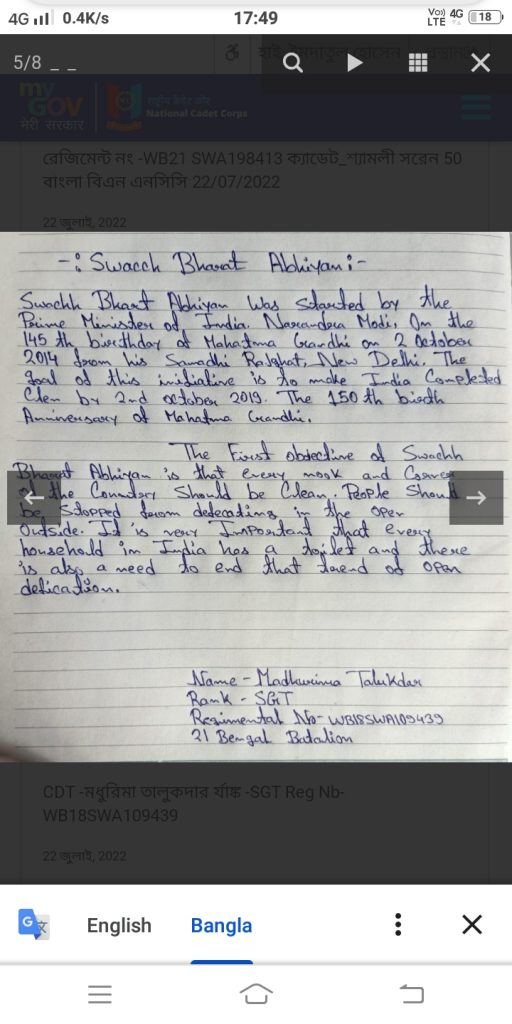 4G 0.4K/s 17:49 Vo) LTE 4G 18
5/8 _ _
my
GOV
मेरी सरकार
राष्ट्रीय कैडेट कोर
National Cadet Corps
রেজিমেন্ট নং -WB21 SWA198413 ক্যাডেট_শ্যামলী সরেন 50
বাংলা বিএন এনসিসি 22/07/2022
22 জুলাই, 2022
-: Swacch Bharat Abhiyan :-
Swachh Bhart Abhiyan Was Started by the
Prime Minister of India. Narandra Modi, On the
145 th birthday of Mahatma Gandhi on 2 October
2014 from his Samadhi Rajghat, New Delhi. The
goal of this inidiative is to make India Completed
Clen by 2nd october 2019. The 150 th birth
Anniversary of Mahatma Gandhi.
The First objective of Swachh
Bharat Abhiyan is that every nook and Corner
the Country Should be Clean. People Should
be Stopped from defecating in the open
Outside. It is very Important that every
household in India has a toilet and there
is also a need to end that trend of open
defication.
Name - Madhurima Talukdar
Rank - SGT
Regimental No- WB18SWA109439
21 Bengal Batalion
CDT -মধুরিমা তালুকদার র্যাঙ্ক -SGT Reg Nb-
WB18SWA109439
22 জুলাই, 2022
G 文 English Bangla